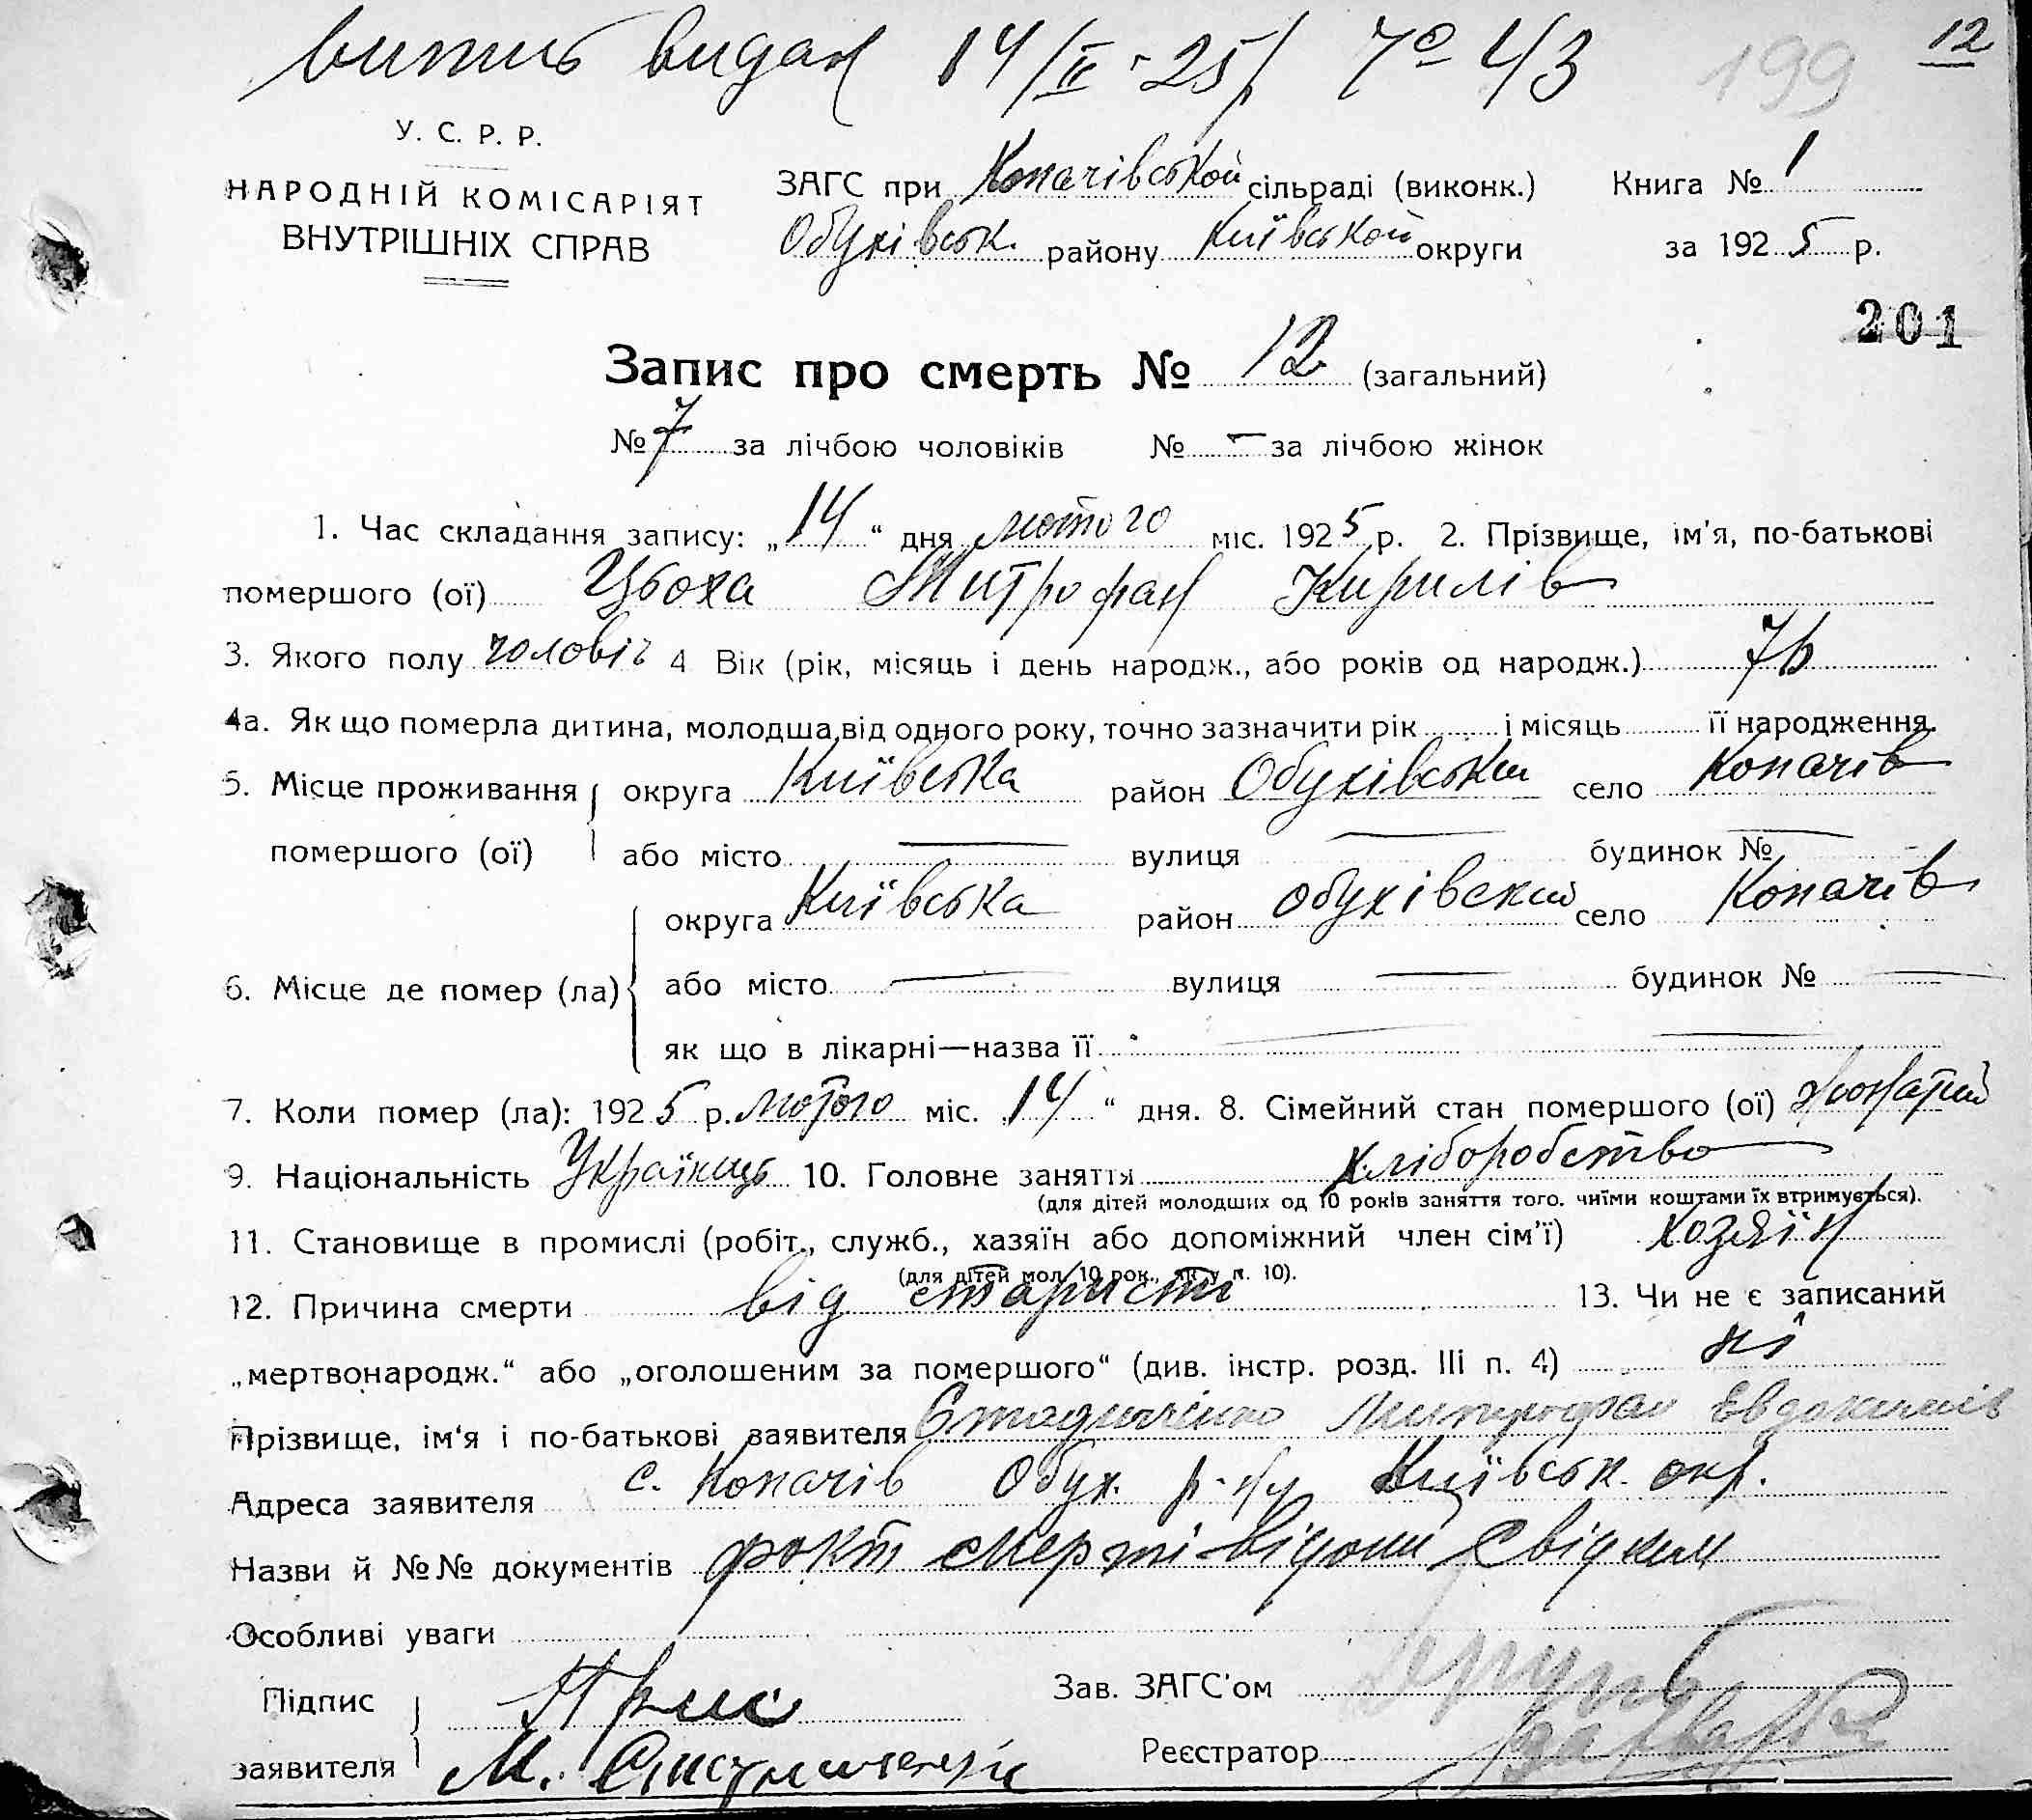 витис видан 14/II-25р № 43 199 12
У. С. Р. Р.
НАРОДНІЙ КОМІСАРІЯТ
ВНУТРІШНІХ СПРАВ
ЗАГС при Копачівській сільраді (виконк.) Книга № 1
Обухівськ. району Київської округи за 1925 р.
201
Запис про смерть № 12 (загальний)
№ 7 за лічбою чоловіків № — за лічбою жінок
1. Час складання запису: „14“ дня лютого міс. 1925 р. 2. Прізвище, ім'я, по-батькові
помершого (ої) Цьоха Митрофан Кирилів
3. Якого полу чоловіч 4 Вік (рік, місяць і день народж., або років од народж.) 76
4а. Як що померла дитина, молодша від одного року, точно зазначити рік і місяць її народження
5. Місце проживання округа Київська район Обухівськи село Копачів
помершого (ої) або місто — вулиця — будинок № —
округа Київська район Обухівский село Копачів
6. Місце де помер (ла) або місто — вулиця — будинок № —
як що в лікарні—назва її — —
7. Коли помер (ла): 1925 р. лютого міс. „14“ дня. 8. Сімейний стан помершого (ої) жонатий
9. Національність Українець 10. Головне заняття хліборобство
(для дітей молодших од 10 років заняття того. чиїми коштами їх втримується).
11. Становище в промислі (робіт., служб., хазяїн або допоміжний член сім'ї) хозяїн
(для дітей мол. 10 рок., як у п. 10).
12. Причина смерти від старисти 13. Чи не є записаний
„мертвонародж.“ або „оголошеним за помершого“ (див. інстр. розд. III п. 4) ні
Прізвище, ім'я і по-батькові заявителя Митрофан Євдокимів
Адреса заявителя с. Копачів Обух. р-ну Київськ. окр.
Назви й №№ документів факт смерті відоми свідкам
Особливі уваги
Підпис Зав. ЗАГС'ом
заявителя М. Реєстратор